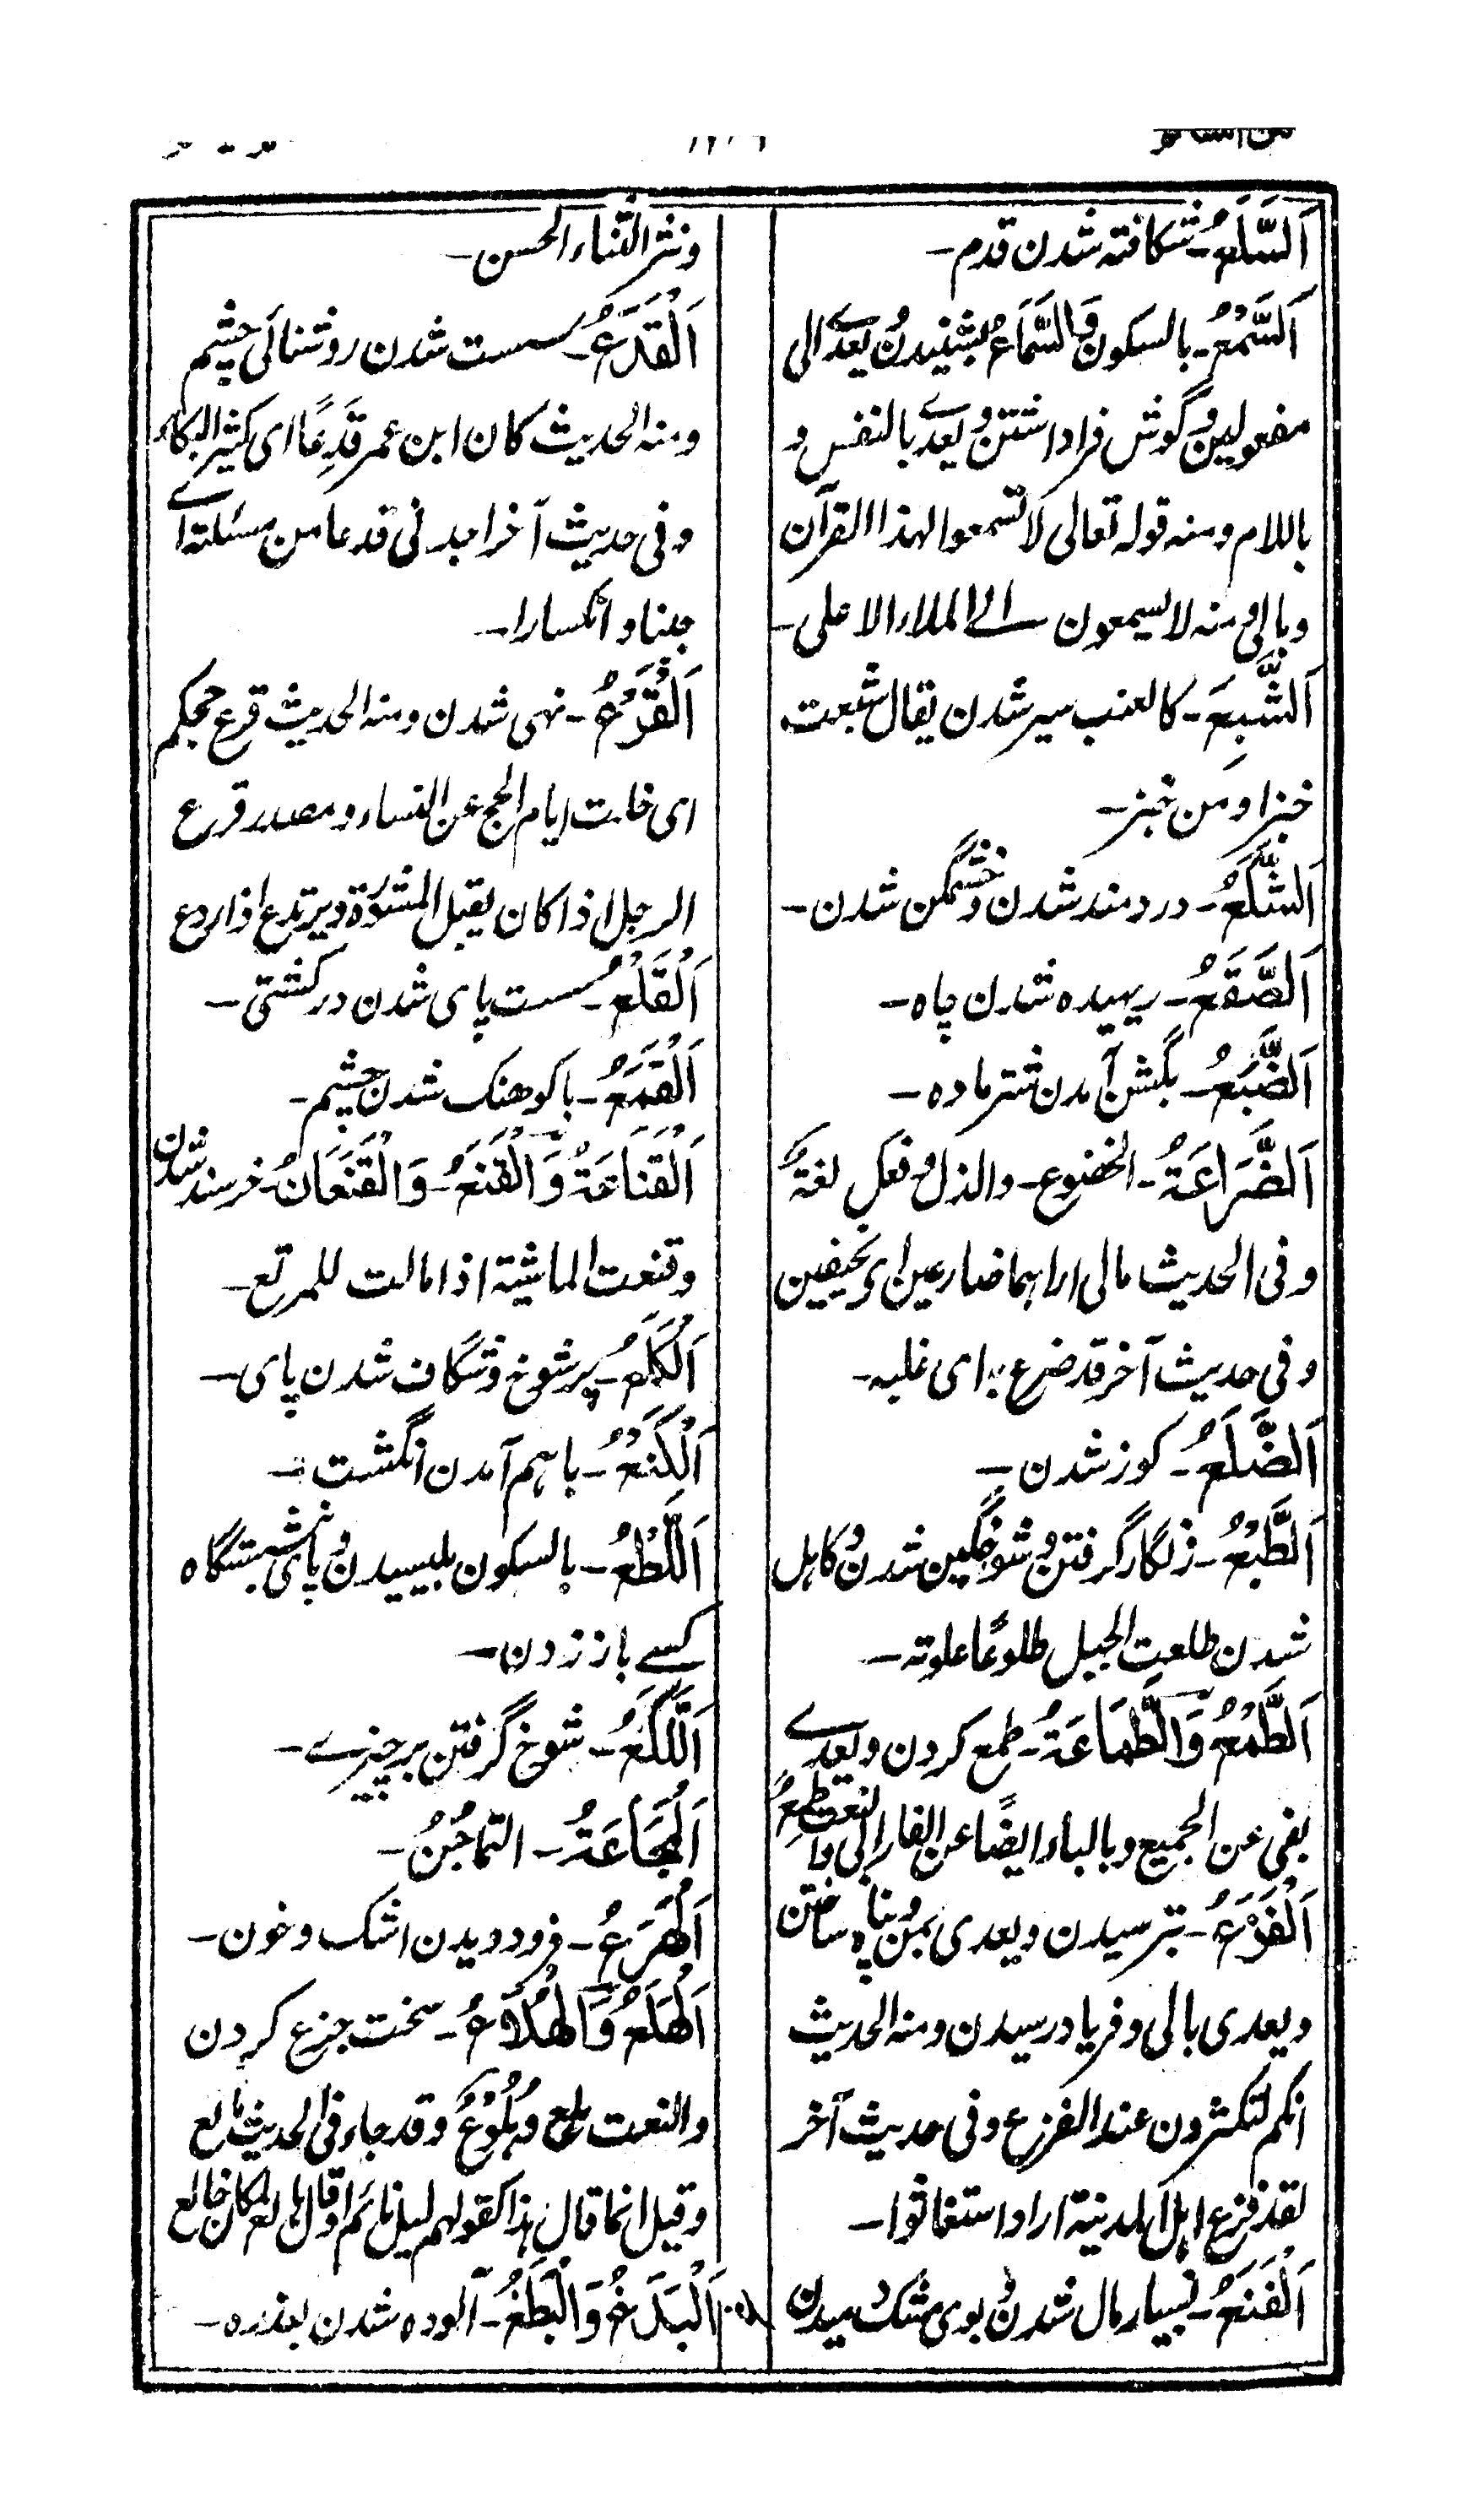 اَلسَّلَعُ۔ شکافته شدن قدم۔
اَلسَّمْعُ۔ بالسکون وَالسَّمَاعُ بشنیدن و یعدے الی
مفعولین و گوش فرا داشتن و یعدے بالنفس و
باللام ومنه قوله تعالی لا تسمعوا لهذا القرآن
وبالی ومنه لا یسمعون الی الملاء الاعلی۔
اَلشِّبَعُ۔ کالعنب سیر شدن یقال شبعت
خبزا ومن خبز۔
اَلشَّکَعُ۔ دردمند شدن و خشمگن شدن۔
اَلصَّقَعُ۔ ریهیده شدن چاه۔
اَلضَّبَعُ۔ بگشن آمدن شتر ماده۔
اَلضَّرَاعَةُ۔ الخضوع۔ والذل و فعل لغة
وفی الحدیث مالی اراهما ضارعین ای نحیفین
وفی حدیث آخر قد ضرع به ای غلبه۔
اَلضَّلَعُ۔ کوز شدن۔
اَلطَّبَعُ۔ زنگار گرفتن و شوخگین شدن و کاهل
شدن طلعت الجبل طلوعًا علوته۔
اَلطَّمَعُ وَالطَّمَاعَةُ۔ طمع کردن و یعدے
بفی عن الجمیع وبالباء ایضًا عن الفارابی والنعت طَمِعٌ
اَلْفَزَعُ۔ ترسیدن ویعدی بمن و پناه ساختن
ویعدی بالی و فریاد رسیدن ومنه الحدیث
انکم لتکثرون عند الفزع وفی حدیث آخر
لقد فزع اهل المدینة اراد استغاثوا۔
اَلْفَنَعُ۔ بسیار مال شدن و بوی مشک دمیدن
ونشر الثناء الحسن۔
اَلْقَدَعُ۔ سست شدن روشنائی چشم
ومنه الحدیث کان ابن عمر قَدِعًا ای کثیر البکاء
وفی حدیث آخر اجدنی قدعا من مسئلته اے
جبنا و انکسارا۔
اَلْقَرَعُ۔ تهی شدن ومنه الحدیث قرع حجکم
ای خلت ایام الحج عن الناس و مصدر قرع
الرجل اذا کان یقبل المشورة ویرتدع اذا ردع
اَلْقَلَعُ۔ سست پای شدن در کشتی۔
اَلْقَمَعُ۔ باکوهنک شدن چشم۔
اَلْقَنَاعَةُ وَالْقَنَعُ۔ وَالْقَنَعَانُ۔ خرسند شدن
وقنعت الماشیة اذا مالت للمرتع۔
اَلْکَلَعُ۔ پر شوخ و شگاف شدن پای۔
اَلْکَنَعُ۔ باهم آمدن انگشت۔
اَللَّطْعُ۔ بالسکون بلیسیدن و پای بنشستگاه
کسے باز زدن۔
اَللَّکَعُ۔ شوخ گرفتن بر چیزے۔
اَلْمَجَاعَةُ۔ التماجُنُ۔
اَلْهَرَعُ۔ فرو دویدن اشک و خون۔
اَلْهَلَعُ وَالْهُلَاعُ۔ سخت جزع کردن
والنعت هلع و هَلُوْعٌ وقد جاء فی الحدیث هالع
وقیل انما قال هذا کقولهم لیل نائم او قال هالع لمکان خالع
اَلْبَدَغُ وَالْبَطَغُ۔ آلوده شدن بعذره۔